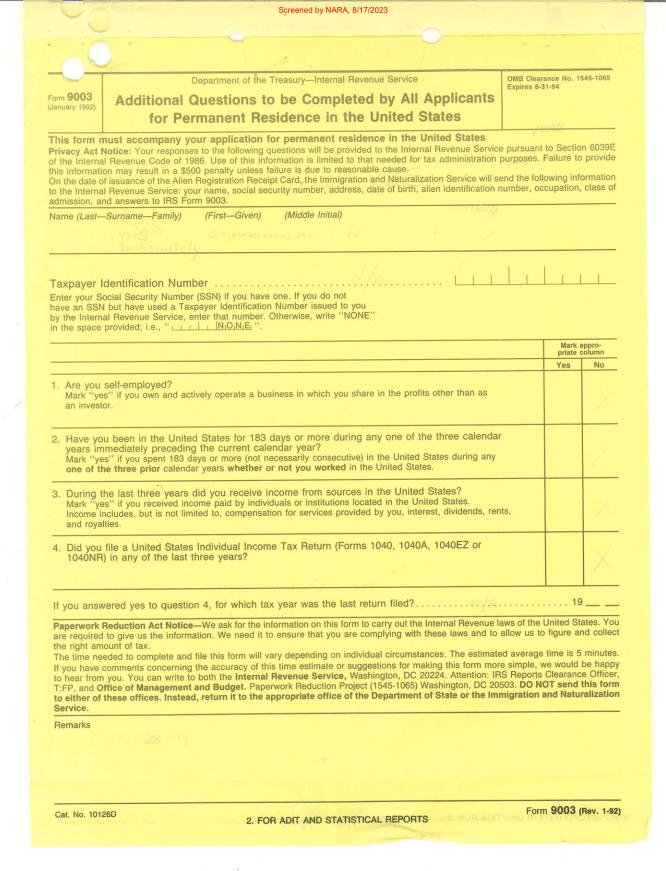 Screened by NARA, 8/17/2023
Form 9003
(January 1992)
Department of the Treasury—Internal Revenue Service
Additional Questions to be Completed by All Applicants
for Permanent Residence in the United States
OMB Clearance No. 1545-1065
Expires 8-31-94
This form must accompany your application for permanent residence in the United States
Privacy Act Notice: Your responses to the following questions will be provided to the Internal Revenue Service pursuant to Section 6039E
of the Internal Revenue Code of 1986. Use of this information is limited to that needed for tax administration purposes. Failure to provide
this information may result in a $500 penalty unless failure is due to reasonable cause.
On the date of issuance of the Alien Registration Receipt Card, the Immigration and Naturalization Service will send the following information
to the Internal Revenue Service: your name, social security number, address, date of birth, alien identification number, occupation, class of
admission, and answers to IRS Form 9003.
Name (Last—Surname—Family) (First—Given) (Middle Initial)
N
Taxpayer Identification Number N/A
Enter your Social Security Number (SSN) if you have one. If you do not
have an SSN but have used a Taxpayer Identification Number issued to you
by the Internal Revenue Service, enter that number. Otherwise, write "NONE"
in the space provided; i.e., " N O N E ".
Mark appro-
priate column
Yes No
1. Are you self-employed?
Mark "yes" if you own and actively operate a business in which you share in the profits other than as
an investor.
X
2. Have you been in the United States for 183 days or more during any one of the three calendar
years immediately preceding the current calendar year?
Mark "yes" if you spent 183 days or more (not necessarily consecutive) in the United States during any
one of the three prior calendar years whether or not you worked in the United States.
3. During the last three years did you receive income from sources in the United States?
Mark "yes" if you received income paid by individuals or institutions located in the United States.
Income includes, but is not limited to, compensation for services provided by you, interest, dividends, rents,
and royalties.
X
4. Did you file a United States Individual Income Tax Return (Forms 1040, 1040A, 1040EZ or
1040NR) in any of the last three years?
X
If you answered yes to question 4, for which tax year was the last return filed? N/A 19
Paperwork Reduction Act Notice—We ask for the information on this form to carry out the Internal Revenue laws of the United States. You
are required to give us the information. We need it to ensure that you are complying with these laws and to allow us to figure and collect
the right amount of tax.
The time needed to complete and file this form will vary depending on individual circumstances. The estimated average time is 5 minutes.
If you have comments concerning the accuracy of this time estimate or suggestions for making this form more simple, we would be happy
to hear from you. You can write to both the Internal Revenue Service, Washington, DC 20224. Attention: IRS Reports Clearance Officer,
T:FP, and Office of Management and Budget. Paperwork Reduction Project (1545-1065) Washington, DC 20503. DO NOT send this form
to either of these offices. Instead, return it to the appropriate office of the Department of State or the Immigration and Naturalization
Service.
Remarks
Cat. No. 10126D
2. FOR ADIT AND STATISTICAL REPORTS
Form 9003 (Rev. 1-92)